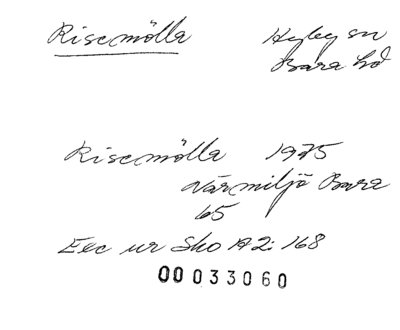 Risemölla Hyby sn
Bara hd
Risemölla 1975
Närmiljö Bara
65
Exc ur Sko A2: 168
00033060